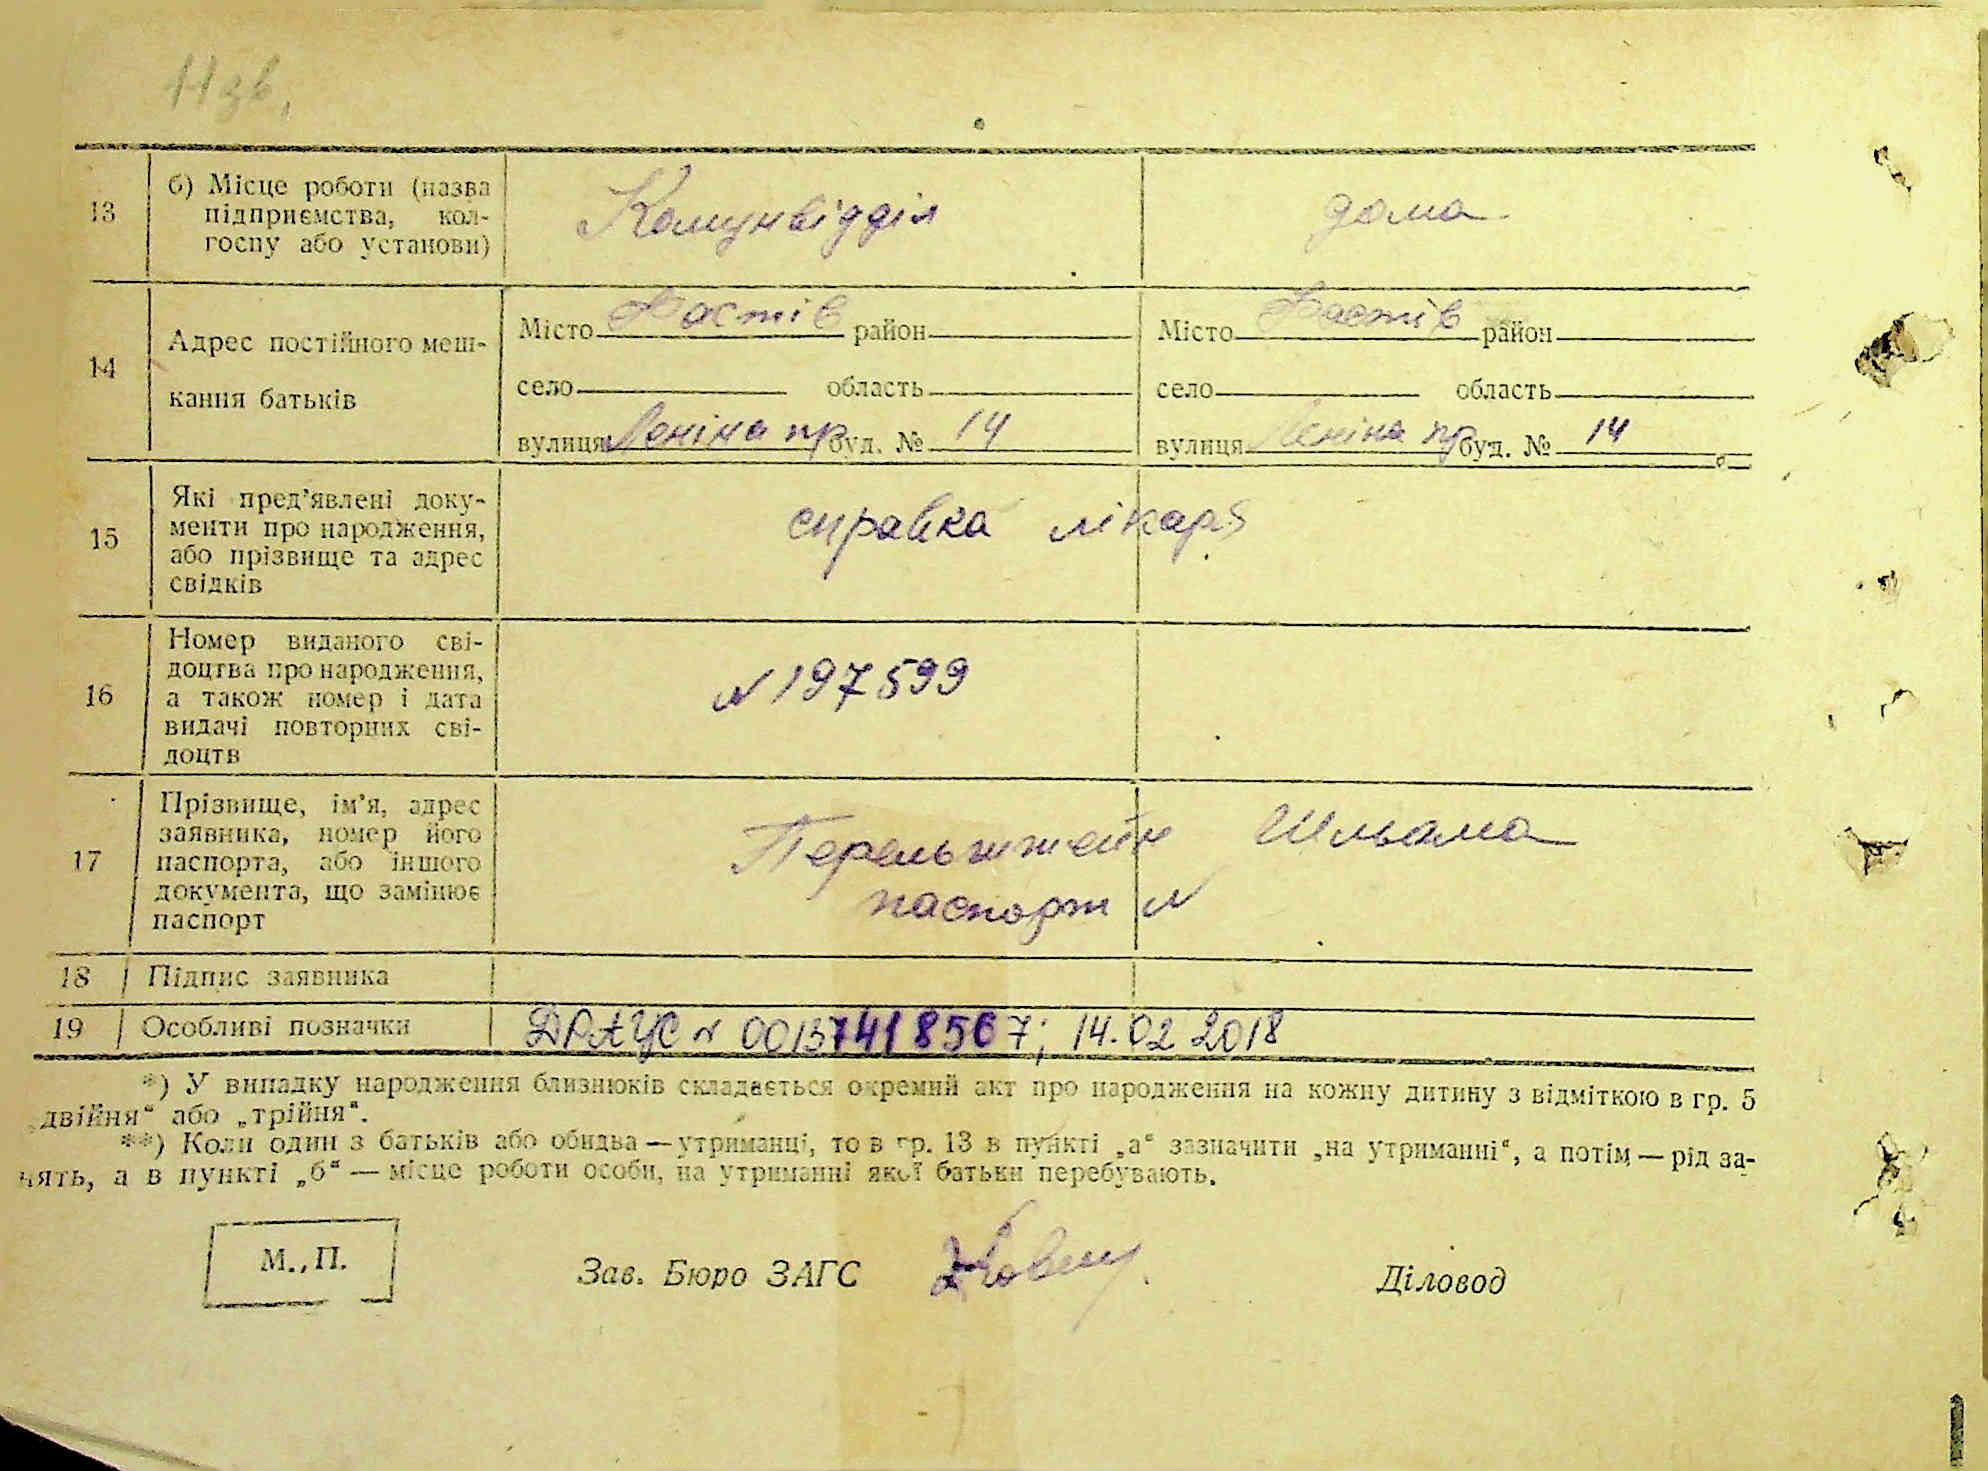 11 зв.
13 б) Місце роботи (назва Комунвідділ дома
підприємства, кол-
госпу або установи)
14 Адрес постійного меш-
кання батьків
Місто Фастів район Місто Фастів район
село область село область
вулиця Леніна пр буд. № 14 вулиця Леніна пр буд. № 14
15 Які пред'явлені доку-
менти про народження,
або прізвище та адрес
свідків
справка лікаря
16 Номер виданого сві-
доцтва про народження,
а також номер і дата
видачі повторних сві-
доцтв
N 197599
17 Прізвище, ім'я, адрес
заявника, номер його
паспорта, або іншого
документа, що замінює
паспорт
Шльома
паспорт N
18 Підпис заявника
19 Особливі позначки ДРАЦС N 00137418567; 14.02 2018
*) У випадку народження близнюків складається окремий акт про народження на кожну дитину з відміткою в гр. 5
„двійня“ або „трійня“.
**) Коли один з батьків або обидва — утриманці, то в гр. 13 в пункті „а“ зазначити „на утриманні“, а потім — рід за-
нять, а в пункті „б“ — місце роботи особи, на утриманні якої батьки перебувають.
М. П. Зав. Бюро ЗАГС Діловод